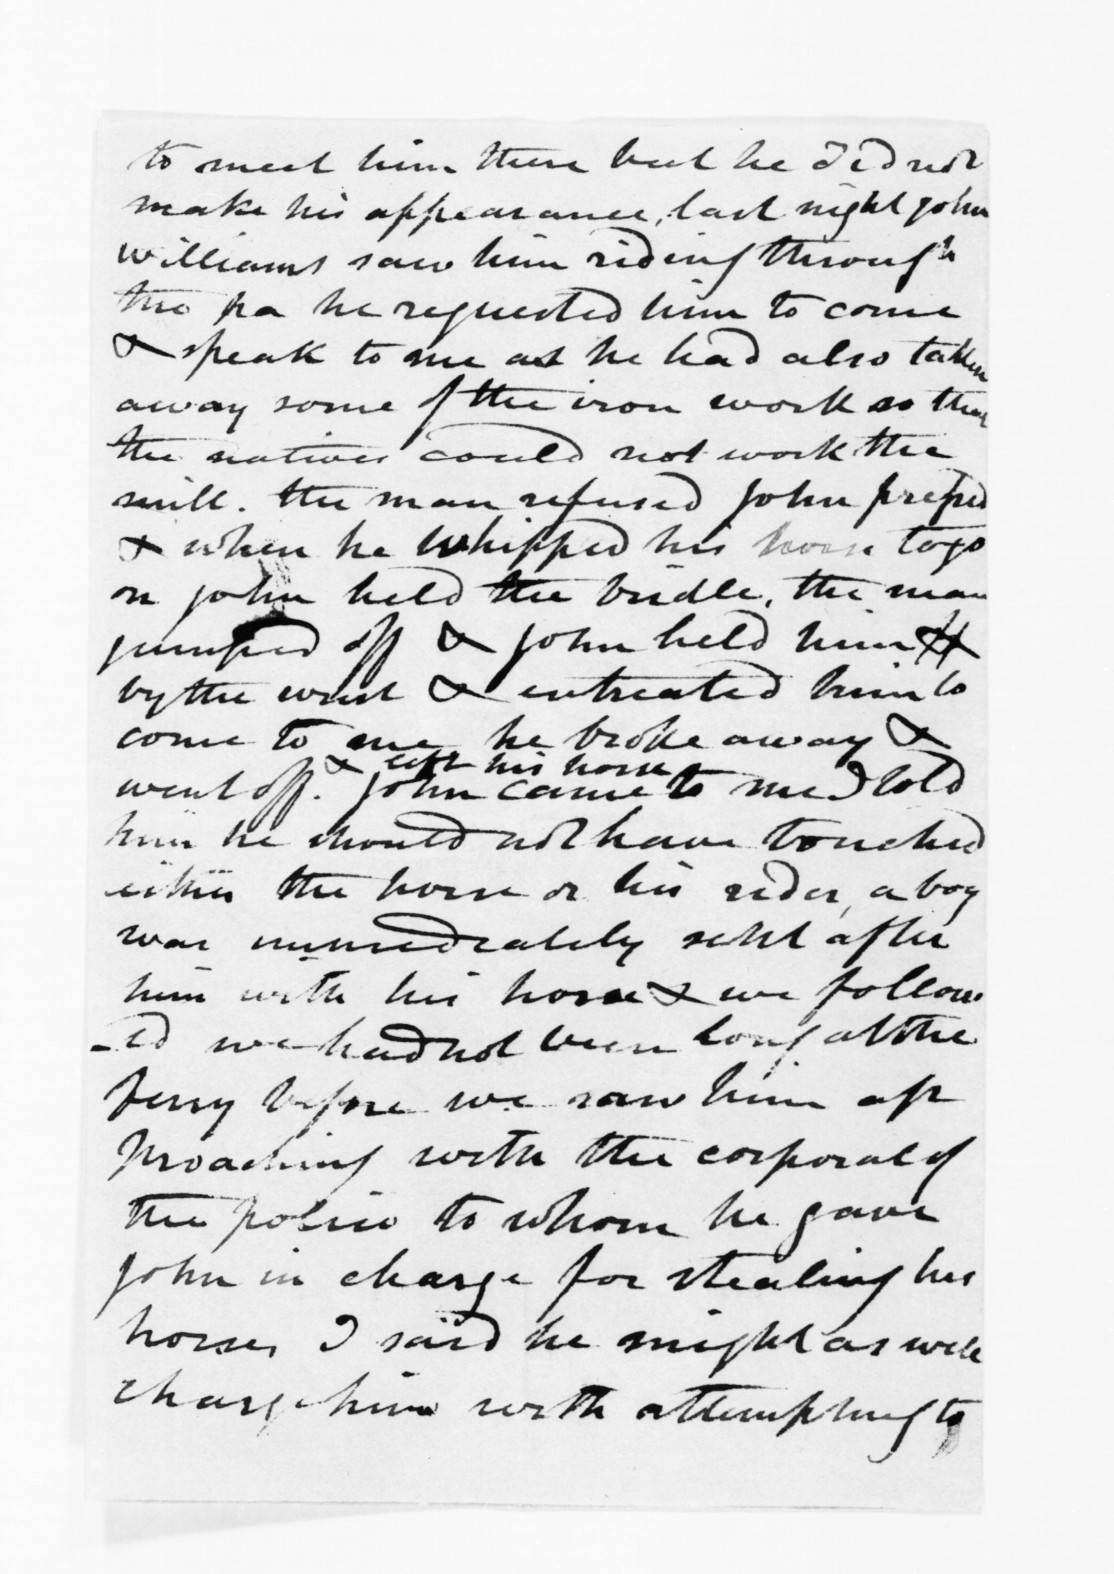 to meet him there but he did not
make his appearance, last night John
Williams saw him riding through
the pa he requested him to come
& speak to me as he had also taken
away some of the iron work so that
the natives could not work the
mill. the man refused John
& when he whipped his horse to go
on John held the bridle, the man
jumped off & John held him
by the wrist & entreated him to
come to me he broke away &
& left his horse
went off. John came to me I told
him he should not have touched
either the horse or his rider, a boy
was immediately sent after
him with his horse & we follow
-ed we had not been long at the
ferry before we saw him ap
proaching with the corporal of
the police to whom he gave
John in charge for stealing his
horse, I said he might as well
charge him with attempting to